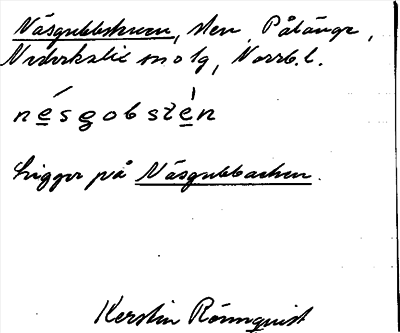 Näsgubbstenen, sten, Pålänge,
Nederkalix sn o lg, Norrb. l.
nésgobstén
Ligger på Näsgubbachen.
Kerstin Rönnquist